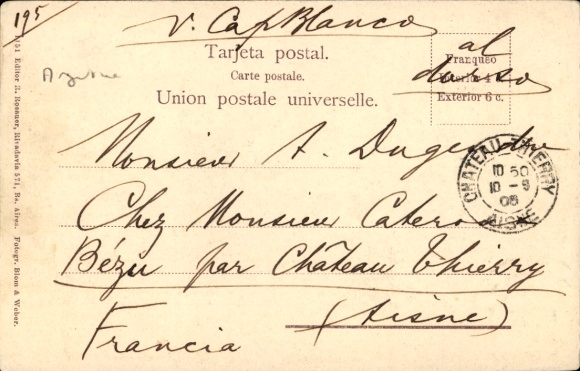 195
v. Cap Blanco
al
dorso
Tarjeta postal.
Carte postale.
Union postale universelle.
Franqueo
Interior 4 c.
Exterior 6 c.
Monsieur A.
CHATEAU-THIERRY
10 50
10 - 8
06
AISNE
Chez Monsieur
Bézu par Château Thierry
(Aisne)
Francia
151 Editor R. Rosauer, Rivadavia 571, Bs. Aires. Fotogr. Blom & Weber.